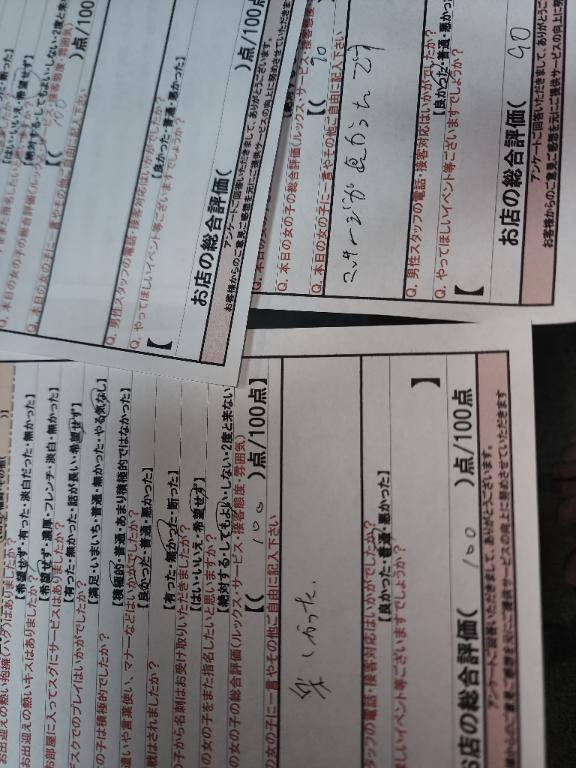 無かった】
【はい・いいえ・希望せず】
【絶対する・してもよい・しない・2度と来ない
【(
)点/100点
Q. 本日の女の子に一言やその他ご自由に記入下さい
Q. 男性スタッフの電話・接客対応はいかがでしたか?
【良かった・普通・悪かった】
Q. やってほしいイベント等ございますでしょうか?
【
お店の総合評価(
)点/100点
アンケートご回答いただきまして、ありがとうございます。
お客様からのご意見ご感想を元にご提供サービスの向上に努めさせていただきます
Q. 本日の女の子の総合評価(ルックス・サービス・接客態度
【( 90
Q. 本日の女の子に一言やその他ご自由に記入下さい
マッサージが良かったです
Q. 男性スタッフの電話・接客対応はいかがでしたか?
【良かった・普通・悪かった
Q. やってほしいイベント等ございますでしょうか?
【
お店の総合評価( 90
アンケートご回答いただきまして、ありがとうござ
お客様からのご意見ご感想を元にご提供サービスの向上に努
お出迎えの熱い抱擁(ハグ)はありましたか?
【希望せず・有った・淡白だった・無かった】
お出迎えの熱いキスはありましたか?
【希望せず・濃厚・フレンチ・淡白・無かった】
お部屋に入ってスグにサービスはありましたか?
【有った・無かった・話が長い・希望せず】
デスクでのプレイはいかがでしたか?
【満足・いまいち・普通・無かった・やる気なし】
の子は積極的でしたか?
【積極的・普通・あまり積極的ではなかった】
遣いや言葉使い、マナーなどはいかがでしたか?
【良かった・普通・悪かった】
戦はされましたか?
子から名刺はお受け取りいただきましたか?
【有った・無かった・断った】
の女の子をまた指名したいと思いますか?
【はい・いいえ・希望せず】
【絶対する・してもよい・しない・2度と来ない】
の女の子の総合評価(ルックス・サービス・接客態度・雰囲気)
【( 100 )点/100点】
の女の子に一言やその他ご自由に記入下さい
楽しかった.
タッフの電話・接客対応はいかがでしたか?
【良かった・普通・悪かった】
ほしいイベント等ございますでしょうか?
】
お店の総合評価( 100 )点/100点
アンケートご回答いただきまして、ありがとうございます。
様からのご意見ご感想を元にご提供サービスの向上に努めさせていただきます